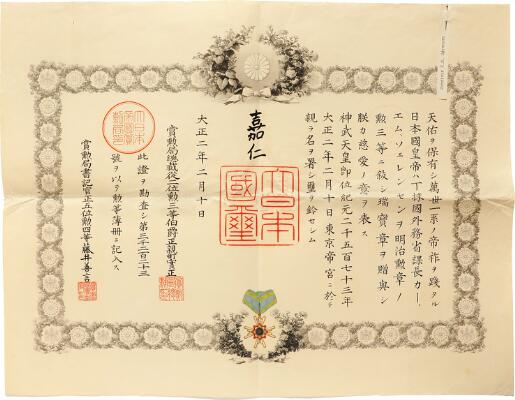 天佑ヲ保有シ萬世一系ノ帝祚ヲ踐タル
日本國皇帝ハ丁抹國外務省課長カー、
エム、ソェレンセンヲ明治勲章ノ
勲三等ニ敍シ瑞寶章ヲ贈與シ
朕カ慈愛ノ意ヲ表ス
神武天皇即位紀元二千五百七十三年
大正二年二月十日東京帝宮ニ於テ
親ラ名ヲ署シ璽ヲ鈐セシム
嘉仁
大日本
國璽
大正二年二月十日
賞勲局總裁從二位勲三等伯爵正親町實正
此證ヲ勘査シ第三千三百二十三
號ヲ以テ勲等簿冊ニ記入ス
賞勲局書記官正五位勲四等藤井善言